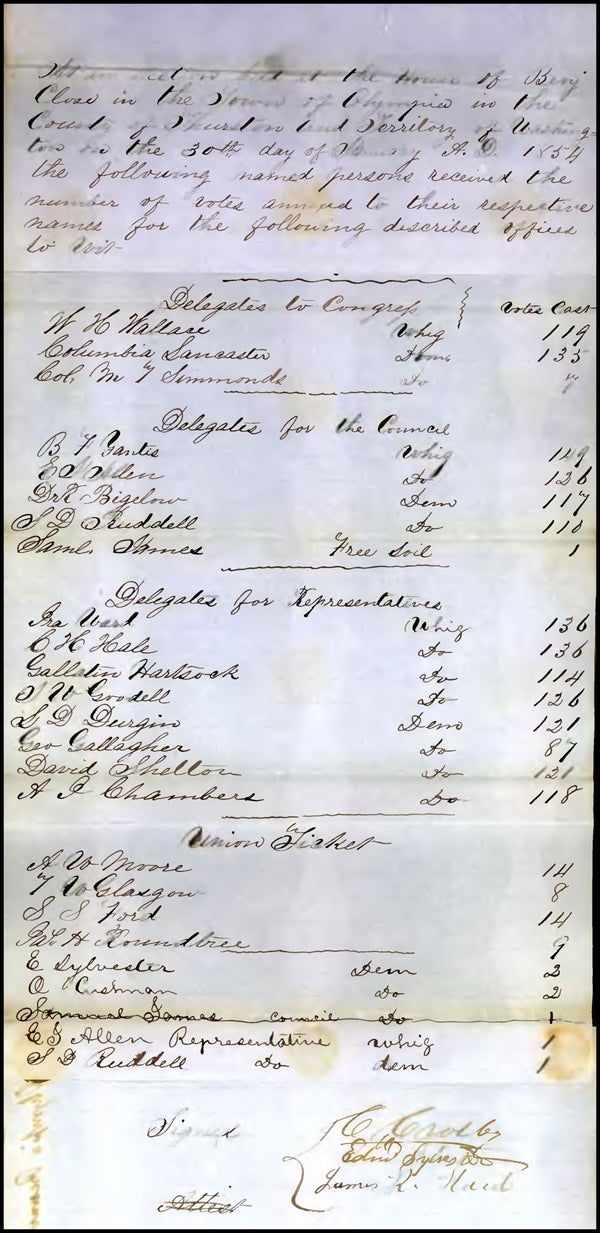 At an election held at the house of Benj
Close in the Town of Olympia in the
County of Thurston and Territory of Washing=
ton on the 30th day of January A. D. 1854
the following named persons received the
number of votes annexed to their respective
names for the following described offices
to wit
Delegates to Congress Votes Cast
W H Wallace Whig 119
Columbia Lancaster Dem 135
Col. M T Simmonds Do 7
Delegates for the Council
B F Yantis Whig 149
E Allen Do 126
Bigelow Dem 117
S D Ruddell Do 110
Saml. James Free Soil 1
Delegates for Representatives
Ira Ward Whig 136
C H Hale Do 136
Gallatin Hartsock Do 114
J W Goodell Do 126
L D Durgin Dem 121
Geo Gallagher Do 87
David Shelton Do 121
A J Chambers Do 118
Union Ticket
A W Moore 14
T W Glasgow 8
S S Ford 14
Jas. H Roundtree 9
E Sylvester Dem 2
O Cushman Do 2
Samuel James council Do 1
E J Allen Representative Whig 1
S D Ruddell Do dem 1
Signed C Crosby
Edmd Sylvester
James K. Hurd
Attest